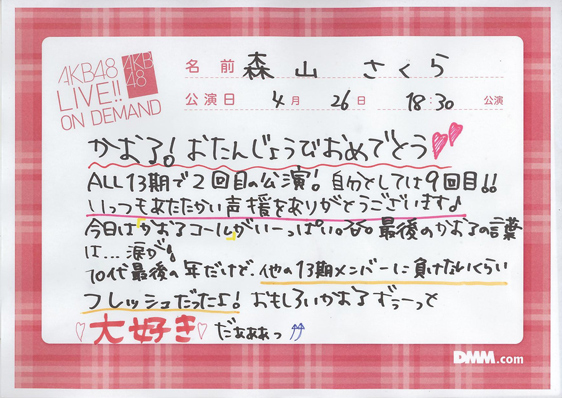 AKB48
LIVE!!
ON DEMAND
AKB
48
名前 森山 さくら
公演日 4月 26日 18:30 公演
かおる!おたんじょうびおめでとう
ALL13期で2回目の公演!自分としては9回目!!
いっつもあたたかい声援をありがとうございます♪
今日は「かおるコール」がいーっぱい。最後のかおるの言葉
は...涙が
10代最後の年だけど、他の13期メンバーに負けないくらい
フレッシュだったよ!おもしろいかおるずぅーっと
♡大好き♡だぁぁぁっ⇈
DMM.com